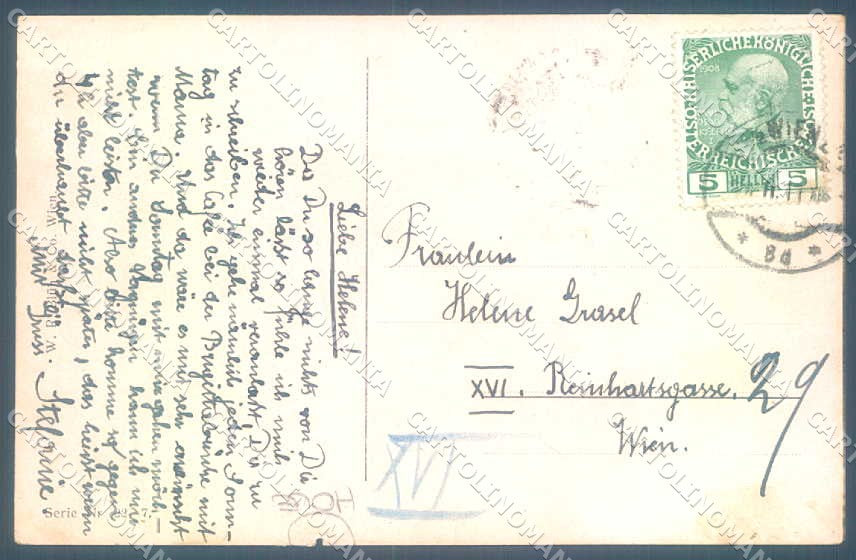 Liebe Helene!
Da Du so lange nichts von Dir
hören läßt so fühle ich mich
wieder einmal veranlaßt Dir zu
zu schreiben. Ich gehe nämlich jeden Sonn-
tag in das Cafe bei der Burgstiebüche mit
Mama. Und da wäre es mir sehr erwünscht
wenn Du Sonntag mit mir gehen möch-
test. Ein anderes Vergnügen kann ich mir
nicht leisten. Also bitte komme so gegen
Uhr aber bitte nicht später, das heißt wenn
du überhaupt darfst.
Mit Bussi Stefanie
Serie Nr. 7.
KAISERLICHE KÖNIGLICHE
ÖSTERREICHISCHE POST
1908
5 HELLER 5
WIEN
8d
Fräulein
Helene Grasel
XVI. Reinhartsgasse. 29
Wien.
XVI
CARTOLINOMANIA